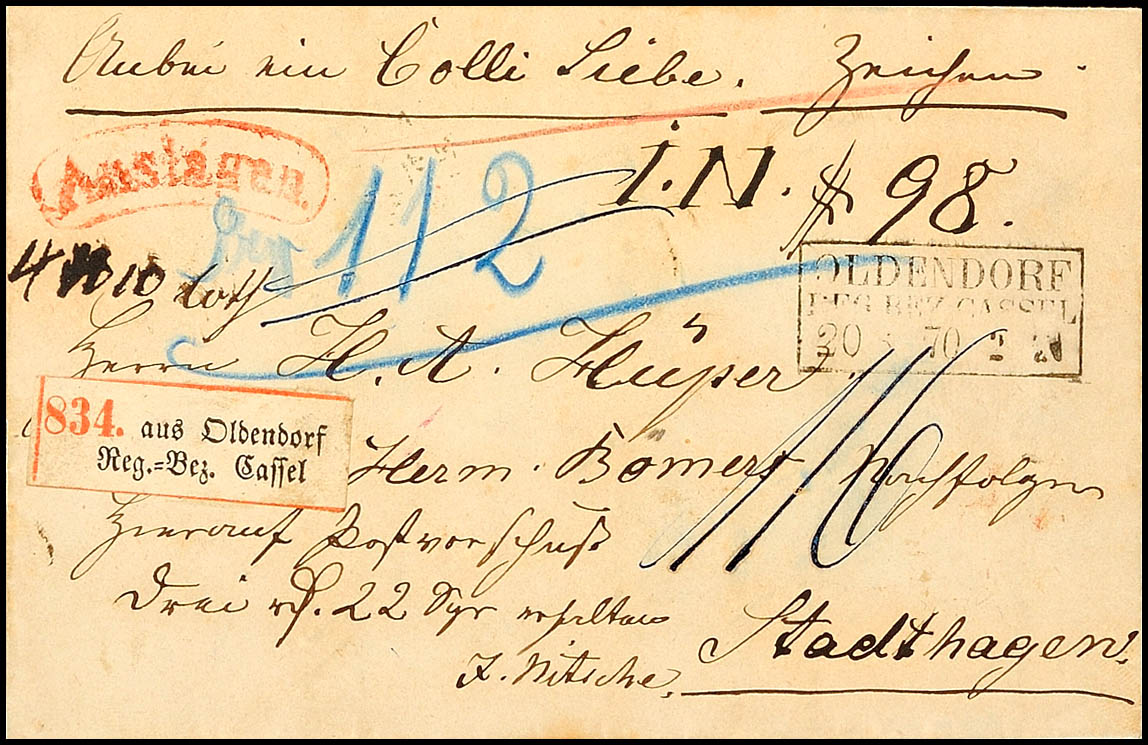 Anbei ein Colli Siebe. Zeichen
Auslagen.
I. N. # 98.
112
4 10 Loth
OLDENDORF
REG. BEZ. CASSEL
20 70
Herrn H. A. Hüper
16
834. aus Oldendorf
Reg.=Bez. Cassel
Herm. Bömers Nachfolger
Hierauf Postvorschuß
Drei rℓ. 22 Sgr erhalten
F. Nitsche.
Stadthagen.